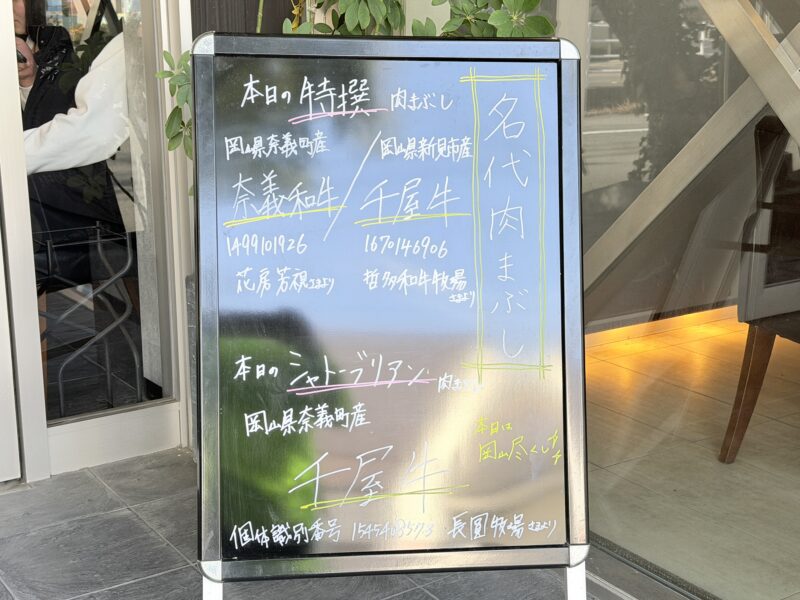 名代肉まぶし
本日の特撰肉まぶし
岡山県奈義町産
奈義和牛
1499101926
花房芳視さまより
岡山県新見市産
千屋牛
1670146906
哲多和牛牧場さまより
本日のシャトーブリアン肉まぶし
岡山県奈義町産
千屋牛
個体識別番号 長園牧場さまより
本日は
岡山尽くし